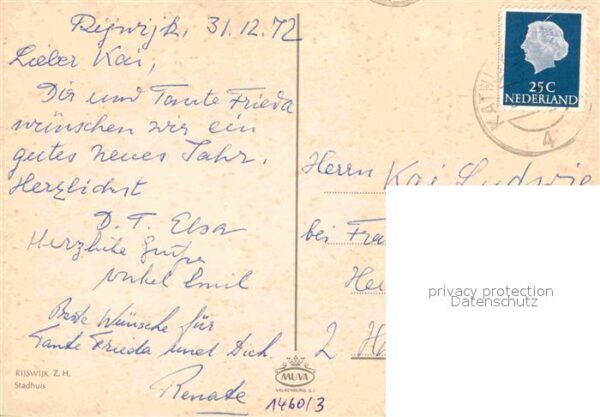 Rijwijk, 31.12.72
Lieber Kai,
Dir und Tante Frieda
wünschen wir ein
gutes neues Jahr.
Herzlichst
D. T. Elsa
Herzliche Grüße
onkel Emil
Beste Wünsche für
Tante Frieda und Dich.
Renate
RIJSWIJK Z.H.
Stadhuis
MUVA
VALKENBURG (L.)
1460/3
25C
NEDERLAND
KATWI
4
Herrn Kai Ludwig
bei Fra
He
2 Ha
privacy protection
Datenschutz